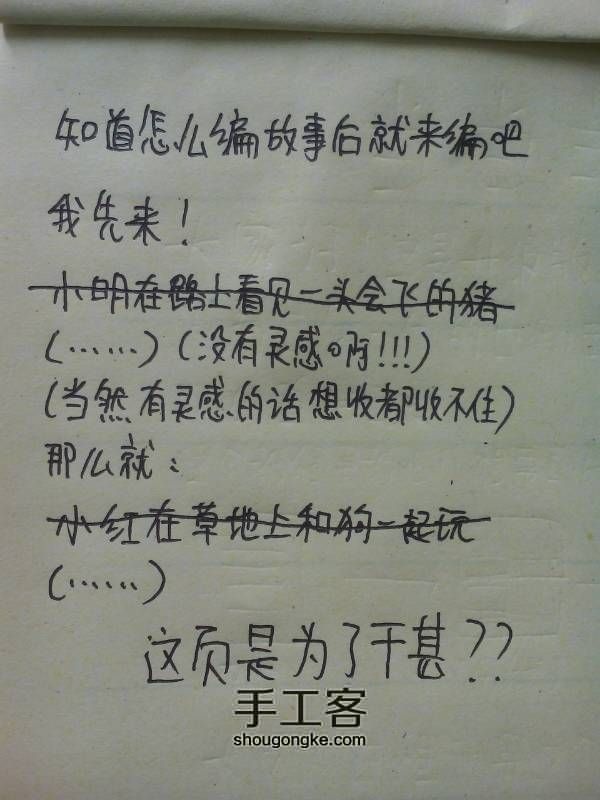 知道怎么编故事后就来编吧
我先来！
小明在路上看见一头会飞的猪
(……)(没有灵感啊!!!)
(当然有灵感的话想收都收不住)
那么就：
小红在草地上和狗一起玩
(……)
这页是为了干甚??
手工客
shougongke.com